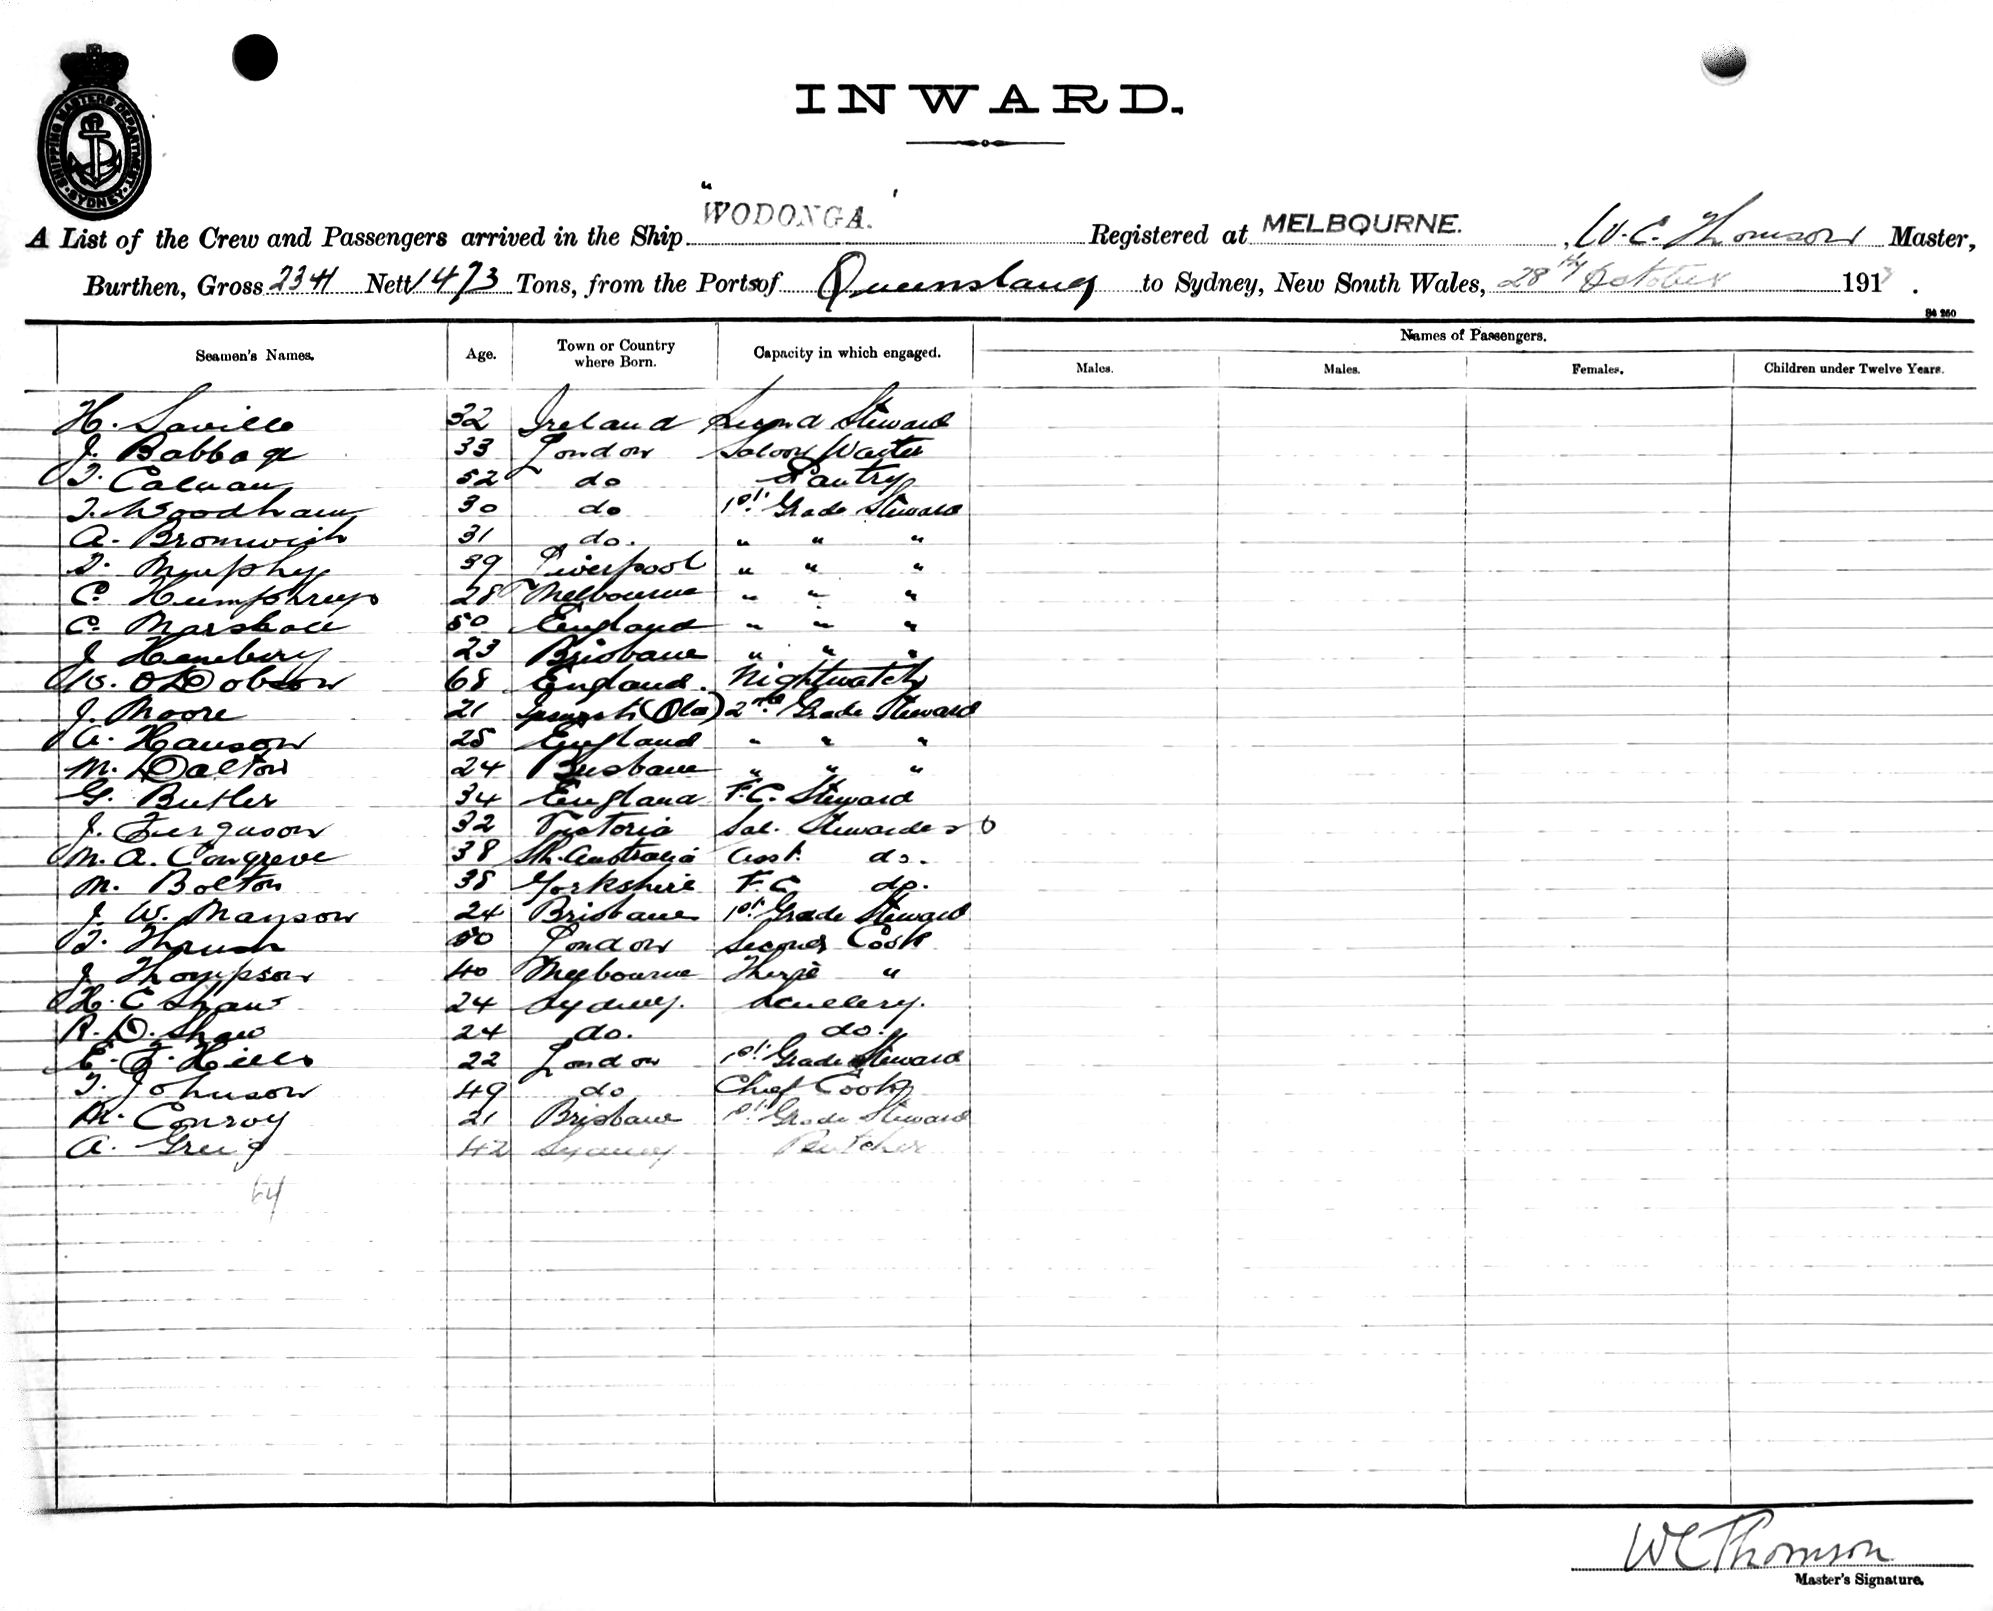 SHIPPING MASTERS DEPARTMENT SYDNEY
INWARD.
A List of the Crew and Passengers arrived in the Ship "WODONGA." Registered at MELBOURNE. , W. C. Thomson Master,
Burthen, Gross 2341 Nett 1473 Tons, from the Ports of Queensland to Sydney, New South Wales, 28th October 191 .
Names of Passengers.
Seamen's Names. Age. Town or Country where Born. Capacity in which engaged. Males. Males. Females. Children under Twelve Years.
H. Saville 32 Ireland Second Steward
J. Babbage 33 London Saloon Waiter
T. Calnan 52 do Pantry
T. Woodham 30 do 1st Grade Steward
A. Bromwich 31 do. " " "
T. Murphy 39 Liverpool " " "
C. Humphreys 28 Melbourne " " "
C. Marshall 50 England " " "
J. Henebery 23 Brisbane " " "
W. Dobson 68 England. Nightwatch
J. Moore 21 2nd Grade Steward
A. Hanson 25 England " " "
M. Dalton 24 Brisbane " " "
G. Butler 34 England F.C. Steward
J. Ferguson 32 Victoria Sal. Stewardess
M. A. Congreve 38 Sth. Australia Asst. do.
M. Bolton 38 Yorkshire F.C. do.
J. W. Manson 24 Brisbane 1st Grade Steward
T. Thrush 50 London Second Cook
J. Thompson 40 Melbourne Third "
H. C. Shaw 24 Sydney. Scullery.
R. D. Shaw 24 do. do.
E. F. Hills 22 London 1st Grade Steward
T. Johnson 49 do Chef Cook
M. Conroy 21 Brisbane 1st Grade Steward
A. Greig 42 Sydney Butcher
64
W C Thomson
Master's Signature.